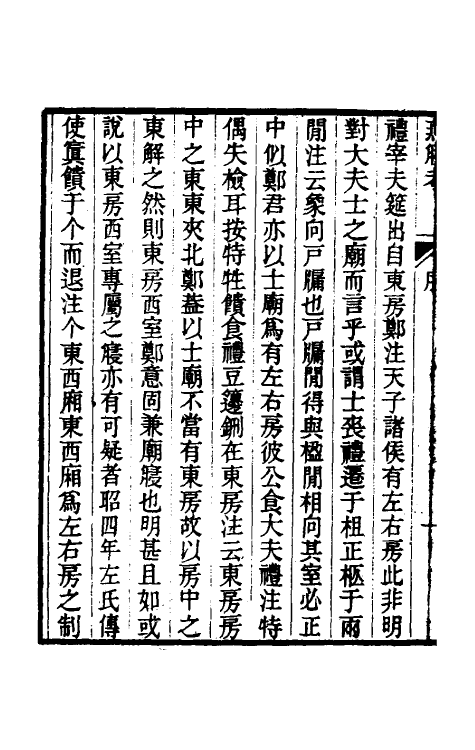 禮宰夫筵出自東房鄭注天子諸侯有左右房此非明
對大夫士之廟而言乎或謂士喪禮遷于祖正柩于兩
閒注云象向戸牖也戸牖閒得與楹閒相向其室必正
中似鄭君亦以士廟爲有左右房彼公食大夫禮注特
偶失檢耳按特牲饋食禮豆籩鉶在東房注云東房房
中之東東夾北鄭葢以士廟不當有東房故以房中之
東解之然則東房西室鄭意固兼廟寝也明甚且如或
說以東房西室專屬之寝亦有可疑者昭四年左氏傳
使寘饋于个而退注个東西廂東西廂爲左右房之制